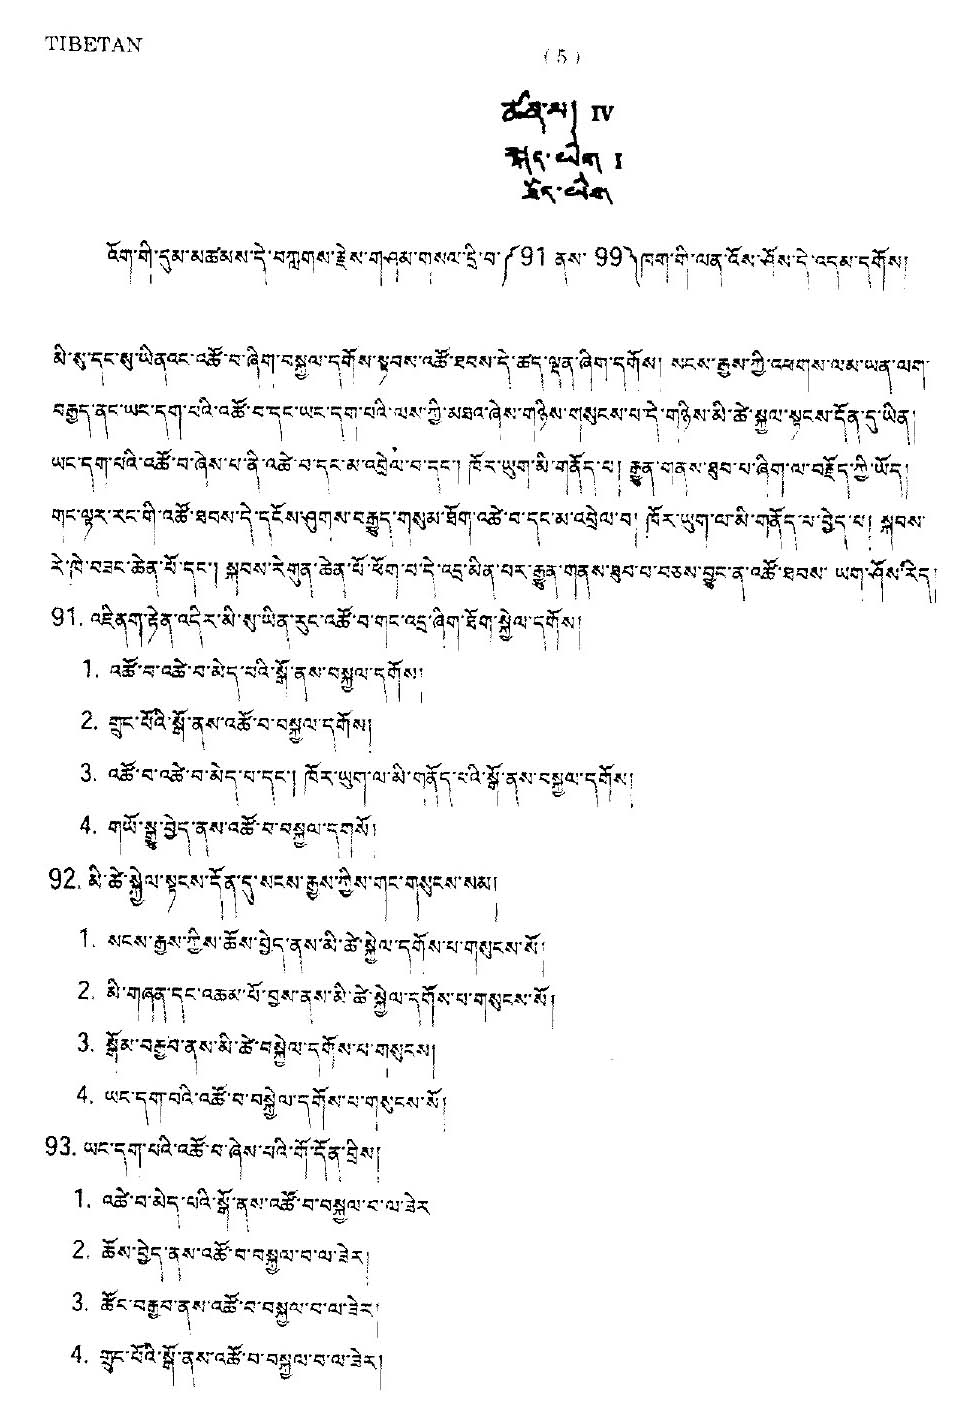 TIBETAN
( 5 )
ཚན་པ། IV
སྐད་ཡིག I
བོད་ཡིག
འོག་གི་དུམ་མཚམས་དེ་བཀླགས་རྗེས་གཤམ་གསལ་དྲི་བ་(91 ནས་ 99)ཁག་གི་ལན་འོས་ཤོས་དེ་འདམ་དགོས།
མི་སུ་དང་སུ་ཡིནའང་འཚོ་བ་ཞིག་བསྐྱལ་དགོས་སྟབས་འཚོ་ཐབས་དེ་ཚད་ལྡན་ཞིག་དགོས། སངས་རྒྱས་ཀྱི་འཕགས་ལམ་ཡན་ལག་
བརྒྱད་ནང་ཡང་དག་པའི་འཚོ་བ་དང་ཡང་དག་པའི་ལས་ཀྱི་མཐའ་ཞེས་གཉིས་གསུངས་པ་དེ་གཉིས་མི་ཚེ་སྐྱལ་སྟངས་དོན་དུ་ཡིན།
ཡང་དག་པའི་འཚོ་བ་ཞེས་པ་ནི་འཚེ་བ་དང་མ་འབྲེལ་བ་དང་། ཁོར་ཡུག་མི་གནོད་པ། རྒྱུན་གནས་ཐུབ་པ་ཞིག་ལ་བརྗོད་ཀྱི་ཡོད།
གང་ལྟར་རང་གི་འཚོ་ཐབས་དེ་དངོས་ཤུགས་བརྒྱུད་གསུམ་ཐོག་འཚེ་བ་དང་མ་འབྲེལ་བ། ཁོར་ཡུག་ལ་མི་གནོད་པ་བྱེད་པ། སྐབས་
རེ་ཁེ་བཟང་ཆེན་པོ་དང་། སྐབས་རེགུན་ཆེན་པོ་ཕོག་པ་དེ་འདྲ་མིན་པར་རྒྱུན་གནས་ཐུབ་པ་བཅས་བྱུང་ན་འཚོ་ཐབས་ ཡག་ཤོས་རེད།
91. འཇིནག་རྟེན་འདིར་མི་སུ་ཡིན་རུང་འཚོ་བ་གང་འདྲ་ཞིག་ཐོག་སྐྱེལ་དགོས།
1. འཚོ་བ་འཚེ་བ་མེད་པའི་སྒོ་ནས་བསྐྱལ་དགོས།
2. གྲུང་པོའི་སྒོ་ནས་འཚོ་བ་བསྐྱལ་དགོས།
3. འཚོ་བ་འཚེ་བ་མེད་པ་དང་། ཁོར་ཡུག་ལ་མི་གནོད་པའི་སྒོ་ནས་བསྐྱལ་དགོས།
4. གཡོ་སྒྱུ་བྱེད་ནས་འཚོ་བ་བསྐྱལ་དགསོ།
92. མི་ཚེ་སྐྱེལ་སྟངས་དོན་དུ་སངས་རྒྱས་ཀྱིས་གང་གསུངས་སམ།
1. སངས་རྒྱས་ཀྱིས་ཆོས་བྱེད་ནས་མི་ཚེ་སྐྱེལ་དགོས་པ་གསུངས་སོ།
2. མི་གཞན་དང་འཆམ་པོ་བྱས་ནས་མི་ཚེ་སྐྱེལ་དགོས་པ་གསུངས་སོ།
3. སྒོམ་བརྒྱབ་ནས་མི་ཚེ་བསྐྱེལ་དགོས་པ་གསུངས།
4. ཡང་དག་པའི་འཚོ་བ་བསྐྱེལ་དགོས་པ་གསུངས་སོ།
93. ཡང་དག་པའི་འཚོ་བ་ཞེས་པའི་གོ་དོན་བྲིས།
1. འཚེ་བ་མེད་པའི་སྒོ་ནས་འཚོ་བ་བསྐྱལ་བ་ལ་ཟེར
2. ཆོས་བྱེད་ནས་འཚོ་བ་བསྐྱལ་བ་ལ་ཟེར།
3. ཚོང་བརྒྱབ་ནས་འཚོ་བ་བསྐྱལ་བ་ལ་ཟེར།
4. གྲུང་པོའི་སྒོ་ནས་འཚོ་བ་བསྐྱལ་བ་ལ་ཟེར།